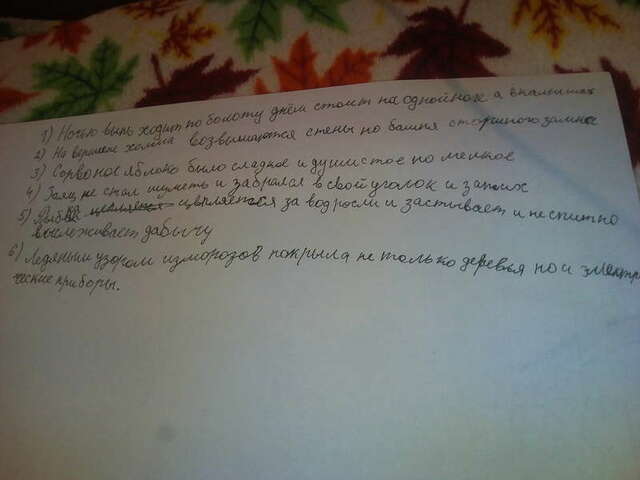 1) Ночью выпь ходит по болоту днём стоит на одной ноге а в камышах
2) На вершине холма возвышаются стены но башня старинного замка
3) Сорваное яблоко было сладкое и душистое но мелкое
4) Заяц не стал шуметь и забрался в свой уголок и затих
5) цепляется за водросли и застывает и неспишно
выслеживает дабычу
6) Ледяным узором изморозь покрыла не только деревья но и электри
ческие приборы.